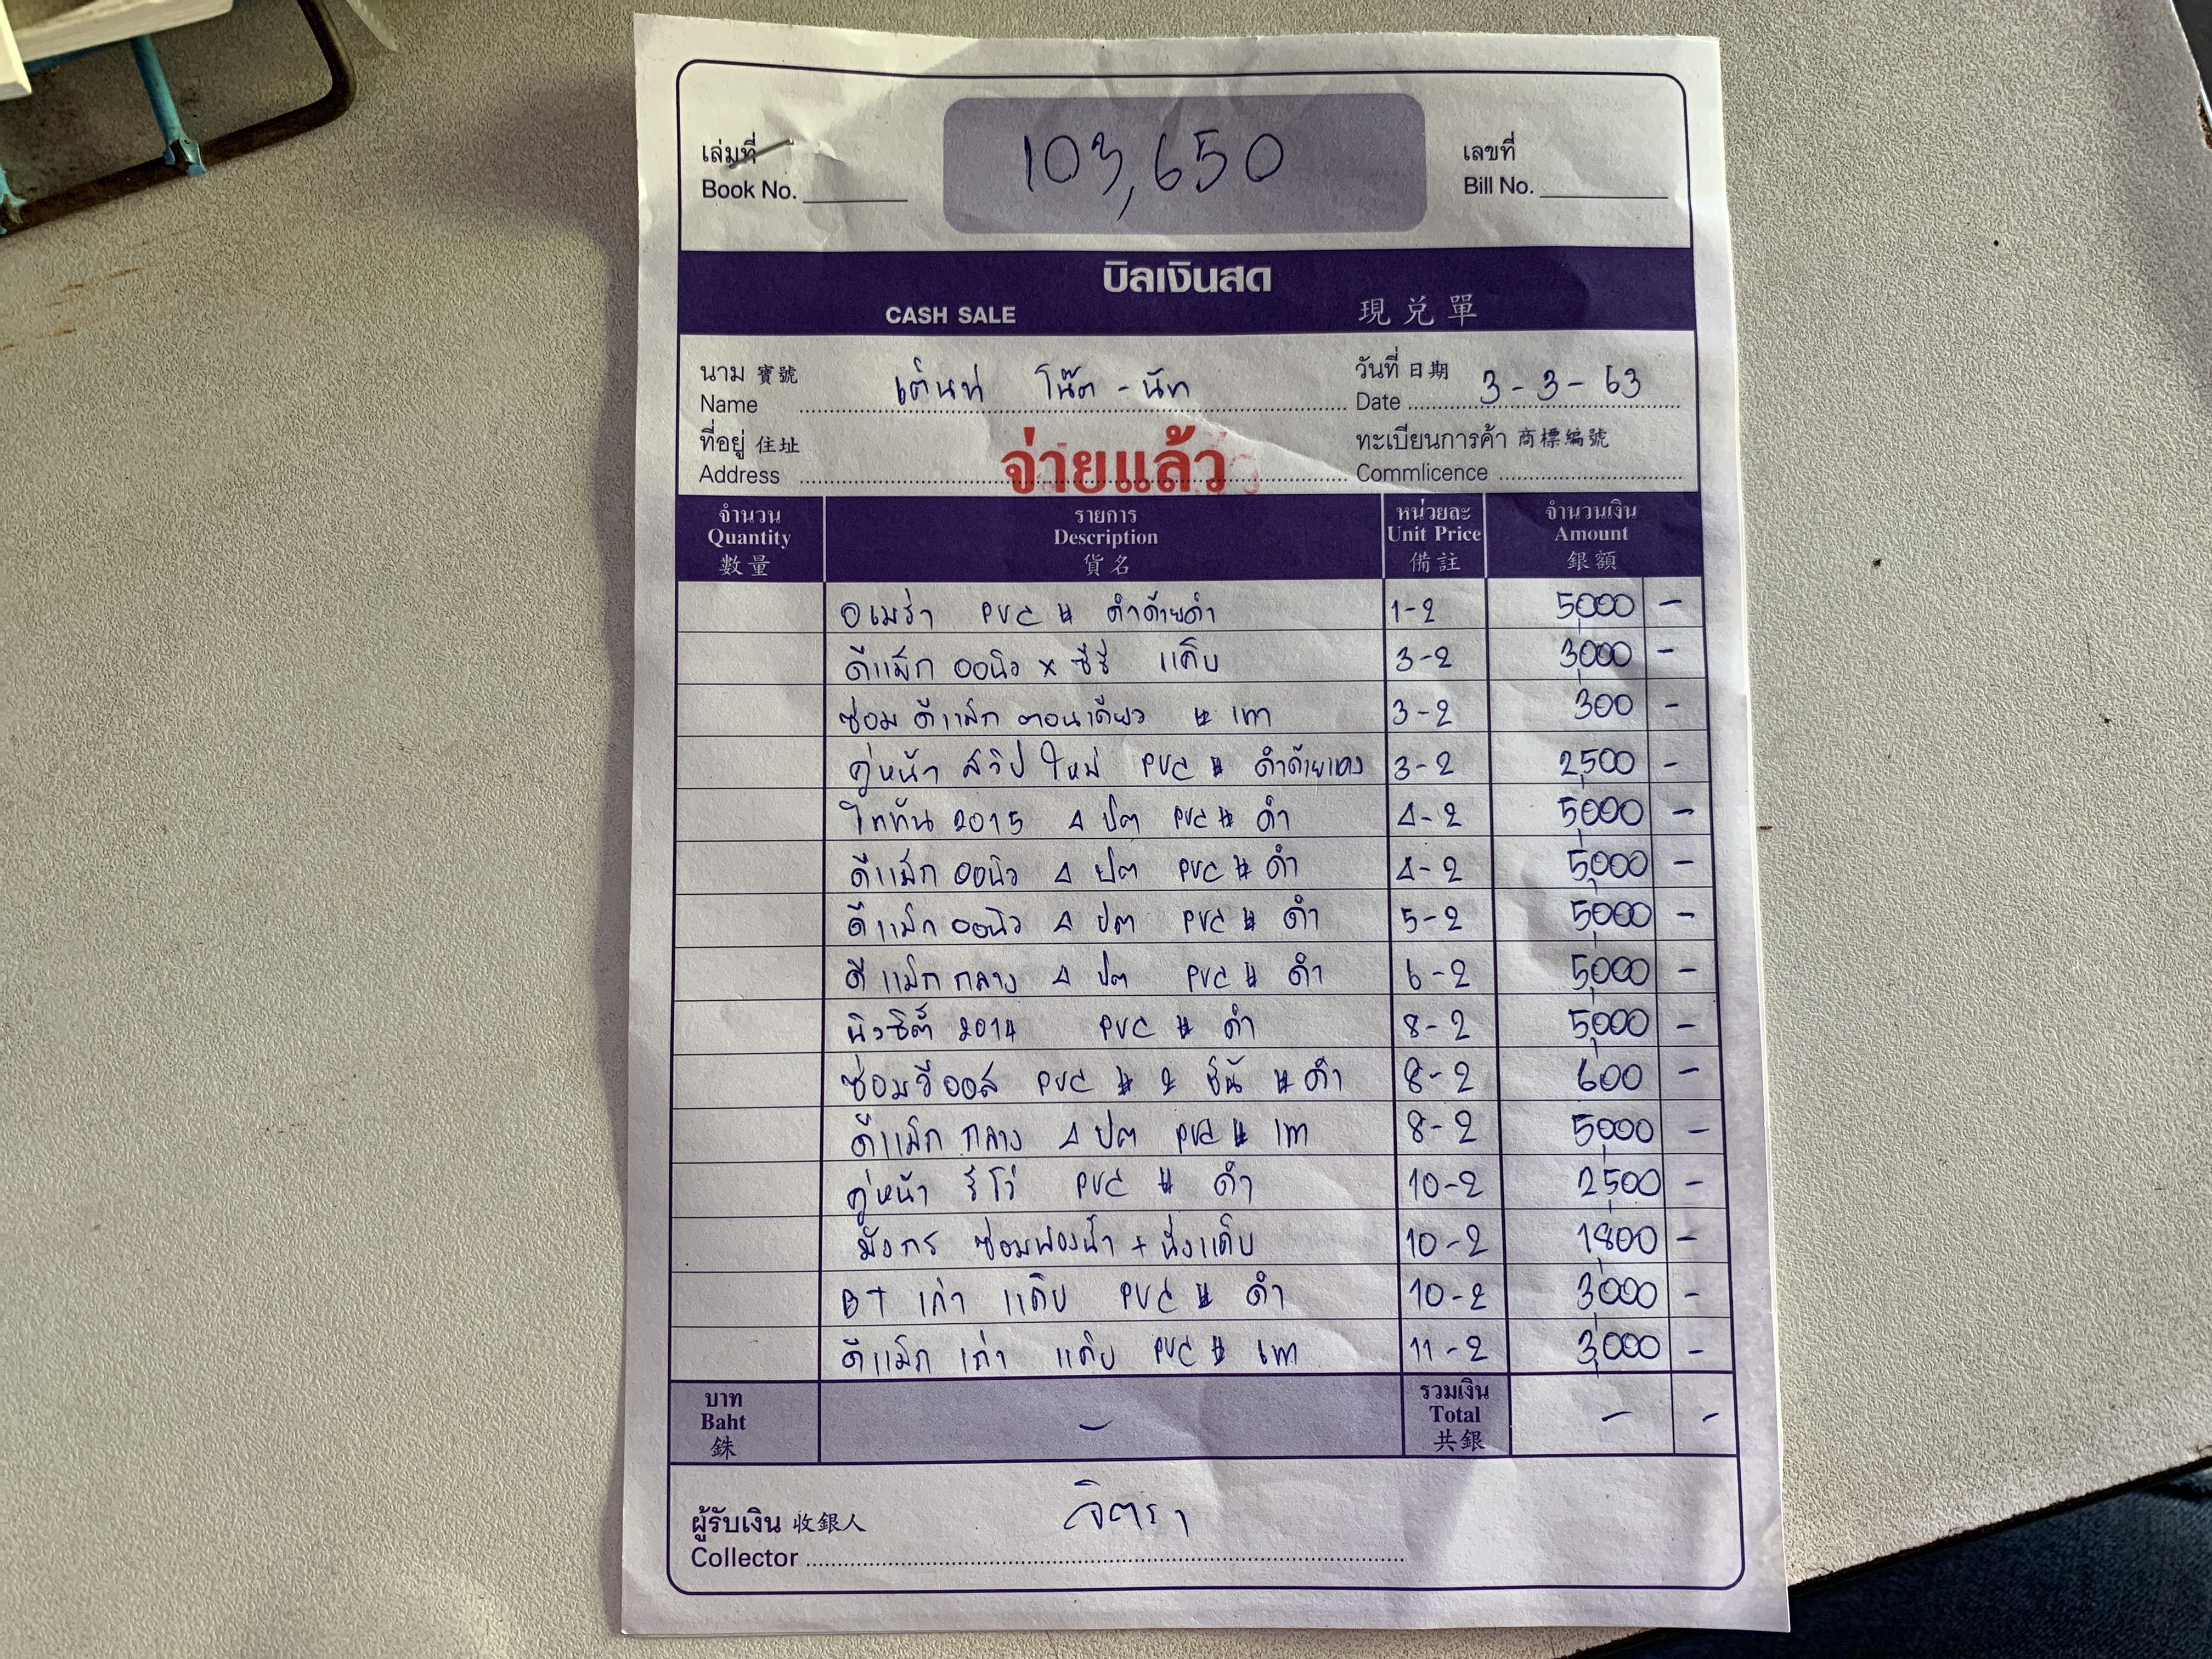 เล่มที่
Book No.
103,650
เลขที่
Bill No.
บิลเงินสด
CASH SALE 現兌單
นาม 寶號
Name
เต็นท์ โน๊ต - นัท
วันที่ 日期
Date 3 - 3 - 63
ที่อยู่ 住址
Address
จ่ายแล้ว
ทะเบียนการค้า 商標編號
Commlicence
จำนวน รายการ หน่วยละ จำนวนเงิน
Quantity Description Unit Price Amount
數量 貨名 備註 銀額
อเมร่า PVC # ดำด้ายดำ 1-2 5,000 -
ดีแม็ก ออนิว x ซีรี่ แค็บ 3-2 3,000 -
ซ่อม ดีแม็ก ตอนเดียว # เทา 3-2 300 -
คู่หน้า สวิป ใหม่ PVC # ดำด้ายแดง 3-2 2,500 -
ไททัน 2015 4 ปต PVC # ดำ 4-2 5,000 -
ดีแม็ก ออนิว 4 ปต PVC # ดำ 4-2 5,000 -
ดีแม็ก ออนิว 4 ปต PVC # ดำ 5-2 5,000 -
ดีแม็ก กลาง 4 ปต PVC # ดำ 6-2 5,000 -
นิวซิตี้ 2014 PVC # ดำ 8-2 5,000 -
ซ่อมวีออส PVC # 2 ชิ้น # ดำ 8-2 600 -
ดีแม็ก กลาง 4 ปต PVC # เทา 8-2 5,000 -
คู่หน้า รีโว่ PVC # ดำ 10-2 2,500 -
มังกร ซ่อมฟองน้ำ + นั่งแค็บ 10-2 1,800 -
BT เก่า แค็บ PVC # ดำ 10-2 3,000 -
ดีแม็ก เก่า แค็บ PVC # เทา 11-2 3,000 -
บาท รวมเงิน
Baht - Total - -
銖 共銀
ผู้รับเงิน 收銀人 จิตรา
Collector